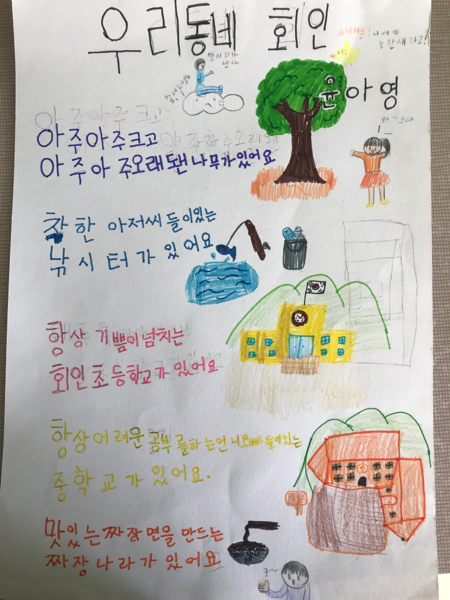 우리동네 회인
윤아영
아주아주크고
아주아주오래됀나무가있어요
착한 아저씨들이있는
낚시터가있어요
항상 기쁨이넘치는
회인초등학교가있어요
항상어려운공부를하는언니오빠들이있는
중학교가있어요.
맛있는짜장면을만드는
짜장나라가있어요